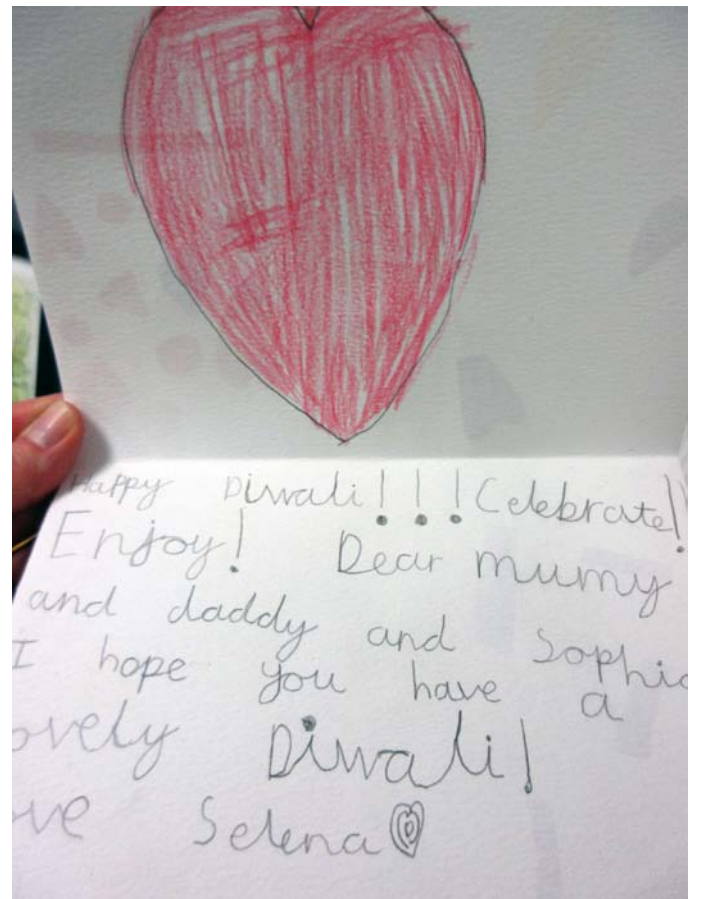 Happy Diwali!!! Celebrate!!
Enjoy! Dear mumy
and daddy and Sophia
I hope you have a
ovely Diwali!
ve Selena